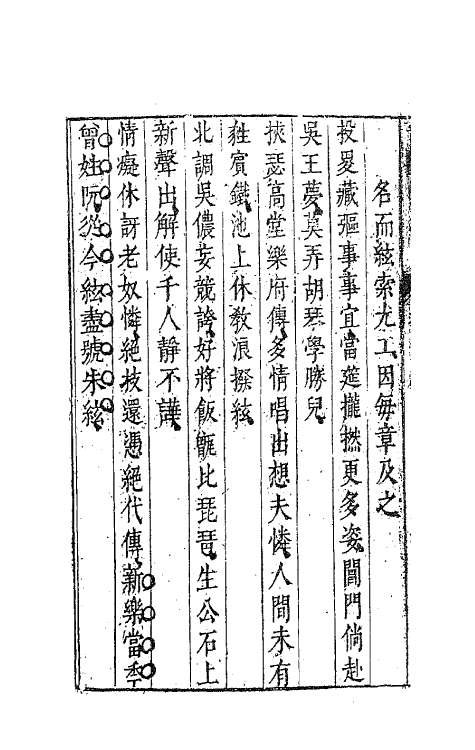 名而絃索尤工因每章及之
投壺藏彄事事宜當筵攏撚更多姿閶門倘赴
吳王夢莫弄胡琴學勝兒
挾瑟高堂樂府傳多情唱出想夫憐人間未有
蕤賓鐵池上休教浪撥絃
北調吳儂妄競誇好將飯甑比琵琶生公石上
新聲出解使千人靜不譁
情癡休訝老奴憐絕技還憑絕代傳新樂當季
曾姓阮從今絃盡號朱絃